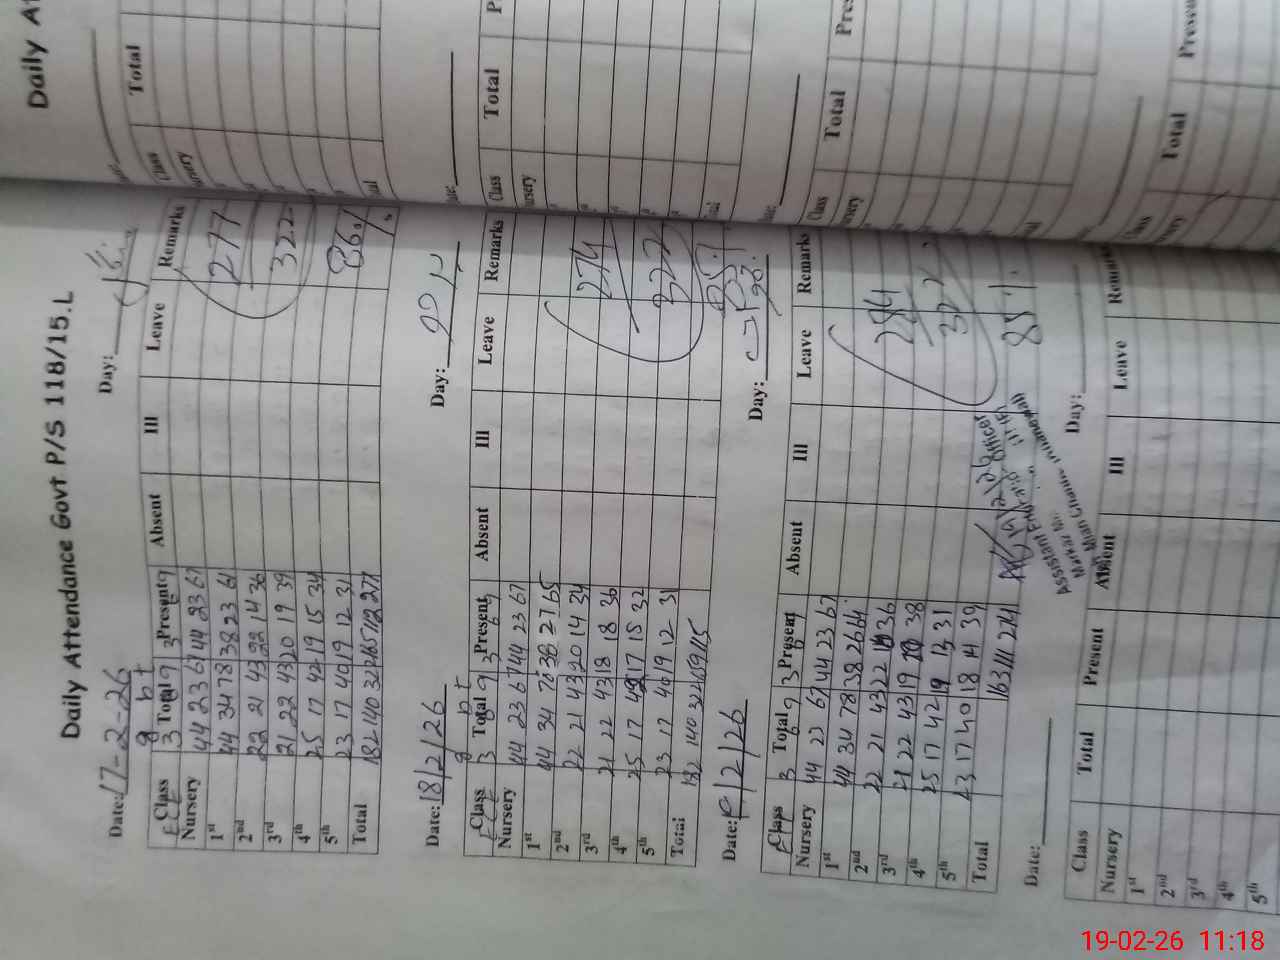 Daily Attendance Govt P/S 118/15.L
Date: 17-2-26 Day:
g b t
Class 3 Total 9 3 Present 9 Absent Ill Leave Remarks
Nursery 44 23 67 44 23 67
1st 44 34 78 38 23 61 277
2nd 22 21 43 22 14 36
3rd 21 22 43 20 19 39 322
4th 25 17 42 19 15 34
5th 23 17 40 19 12 31 86%
Total 182 140 322 165 112 277
Date: 18/2/26 Day:
g b t
Class 3 Total 9 3 Present 9 Absent Ill Leave Remarks
Nursery 44 23 67 44 23 67
1st 44 34 78 38 27 65
2nd 22 21 43 20 14 34 274
3rd 21 22 43 18 18 36
4th 25 17 42 17 15 32 322
5th 23 17 40 19 12 31
Total 182 140 322 159 115 85%
Date: 19/2/26 Day:
Class 3 Total 9 3 Present 9 Absent Ill Leave Remarks
Nursery 44 23 67 44 23 67
1st 44 34 78 38 26 64
2nd 22 21 43 22 14 36 274
3rd 21 22 43 19 19 38
4th 25 17 42 19 12 31 322
5th 23 17 40 18 21 39
Total 163 111 274 85%
19/2/26
Assistant Education Officer
Markaz
Mian Channu
Date: Day:
Class Total Present Absent Ill Leave Remarks
Nursery
1st
2nd
3rd
4th
5th
Daily At
Class Total
Nursery
Class Total P
Nursery
Class Total Pres
Class Total Present
19-02-26 11:18